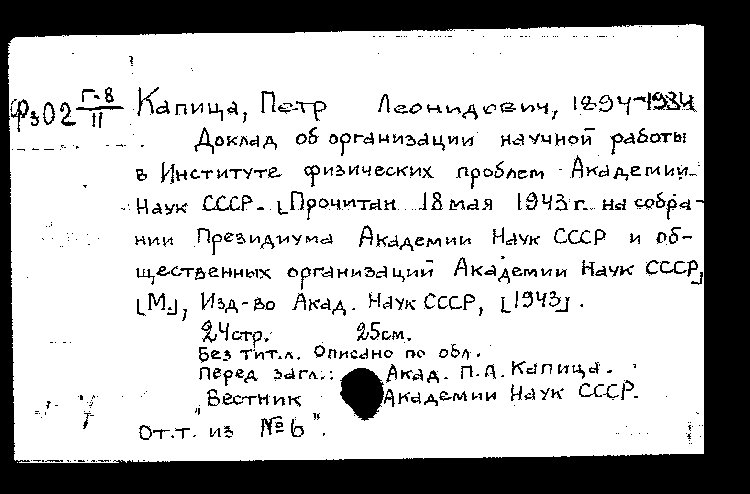 Фз02 Г-8/II Капица, Петр Леонидович, 1894-1984
Доклад об организации научной работы
в Институте физических проблем Академии
Наук СССР. [Прочитан 18 мая 1943 г. на собра-
нии Президиума Академии Наук СССР и об-
щественных организаций Академии Наук СССР]
[М.], Изд-во Акад. Наук СССР, [1943].
24 стр. 25 см.
Без тит.л. Описано по обл.
Перед загл.: Акад. П.Л. Капица.
"Вестник Академии Наук СССР.
От.т. из № 6".